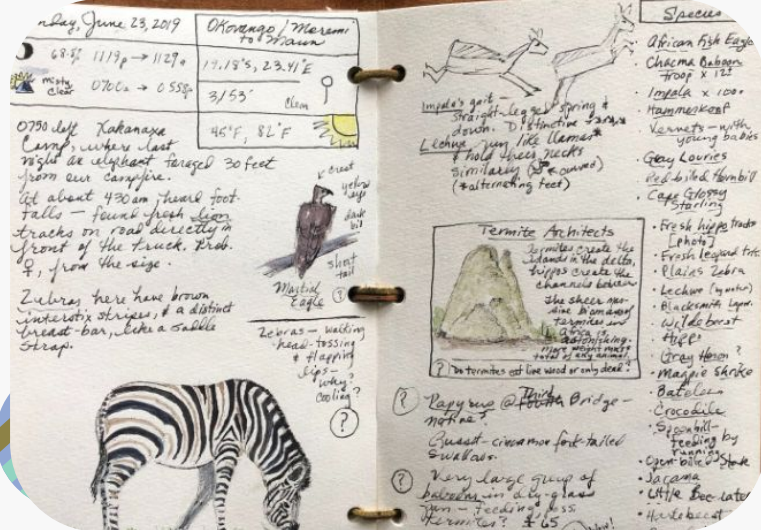 nday, June 23, 2019
Okovango / Moremi
to Maun
68.5% 1119p → 1129a
misty
clear 0700a → 0558p
19.18°S, 23.41°E
3153'
Clean
45°F, 82°F
0750 left Xakanaxa
Camp, where last
night an elephant foraged 30 feet
from our campfire.
At about 430 am, heard foot-
falls — found fresh lion
tracks on road directly in
front of the truck. Prob.
♀, from the size.
Zebras here have brown
interstix stripes, & a distinct
breast-bar, like a saddle
strap.
crest
yellow
eye
dark
bill
short
tail
Martial
Eagle ?
Zebras — walking
head-tossing
& flapping
lips —
why?
Cooling?
?
Impala's gait —
straight-legged spring &
down. Distinctive
Lechwe run like llamas*
& hold their necks
similarly
(*alternating feet)
Termite Architects
Termites create the
islands in the delta,
hippos create the
channels between
The sheer
biomass of
termites in
Africa is
astonishing.
More weight than
total of any animal.
? Do termites eat live wood or only dead?
? Papyrus @ Third Bridge —
native?
Russet-cinnamon fork-tailed
Swallows.
? Very large group of
baboons in dry-grass
— feeding
termites? ± 65
Species
African Fish Eagle
Chacma Baboon
troop x 12
• Impala x 100+
• Hammerkopf
Vervets — with
young babies
• Gray Louries
• Red-billed Hornbill
• Cape Glossy
Starling
• Fresh hippo tracks
[photo]
• Fresh leopard
• Plains Zebra
• Lechwe
• Blacksmith
• Wildebeest
• Hippo
• Gray Heron ?
• Magpie Shrike
• Bateleur
• Crocodile
• Spoonbill —
feeding by
running
• Open-billed Stork
• Jacana
• Little Bee-eater
• Hartebeest